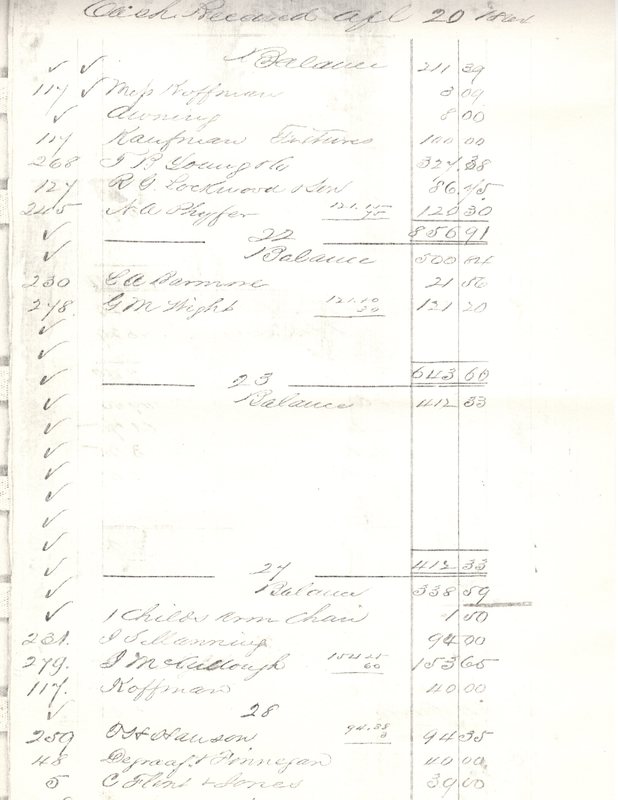 Cash Received Apl 20
✓ ✓ Balance 211 39
117 ✓ Miss Koffman 3 09
✓ Awning 8 00
117 Kaufman Fixtures 100 00
268 T B Young 327 38
127 R G Lockwood & Son 86 45
245 N A Phyfer 120 30
✓ 22 856 91
✓ Balance 500 84
230 C A Barmore 21 56
278. G M Wight 121.40 20 121 20
✓
✓
✓ 23 643 60
✓ Balance 412 33
✓
✓
✓
✓
✓
✓
✓ 24 412 33
✓ Balance 338 59
✓ 1 Childs Arm Chair 1 50
231. J S Manning 94 00
279. J McCullough 154 25 60 153 65
117. Koffman 40 00
✓ 28
259 94.38 3 94 35
48 Degraaf & Finnegan 40 00
5 C Flint & Jones 39 00